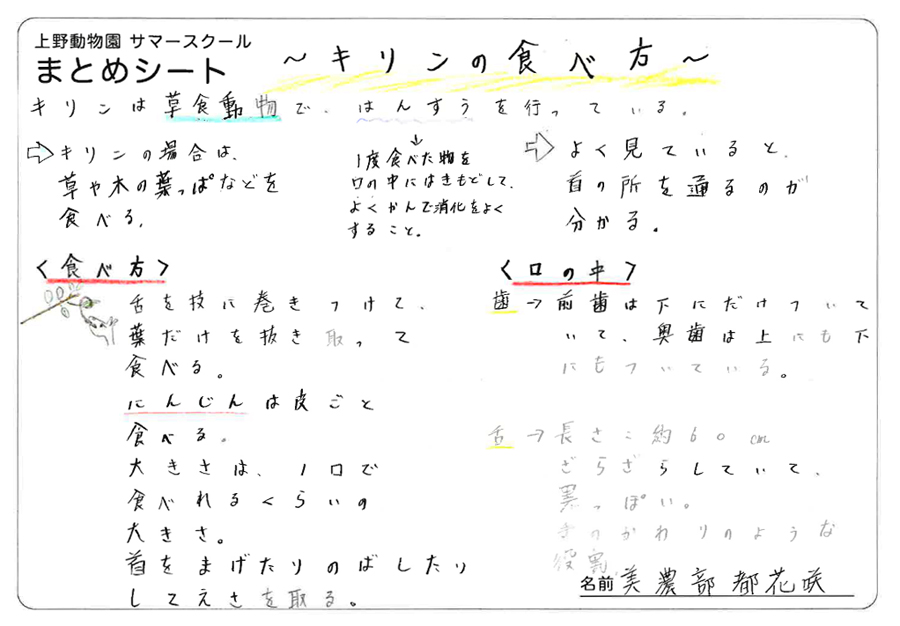 上野動物園 サマースクール
まとめシート
~キリンの食べ方~
キリンは草食動物で、はんすうを行っている。
⇨キリンの場合は、
草や木の葉っぱなどを
食べる。
↓
1度食べた物を
口の中にはきもどして、
よくかんで消化をよく
すること。
⇨よく見ていると、
首の所を通るのが
分かる。
<食べ方>
舌を技に巻きつけて、
葉だけを抜き取って
食べる。
にんじんは皮ごと
食べる。
大きさは、1口で
食べれるくらいの
大きさ。
首をまげたりのばしたり
してえさを取る。
<口の中>
歯→前歯は下にだけついて
いて、奥歯は上にも下
にもついている。
舌→長さ:約60cm
ざらざらしていて、
黒っぽい。
手のかわりのような
役割。
名前 美濃部都花咲